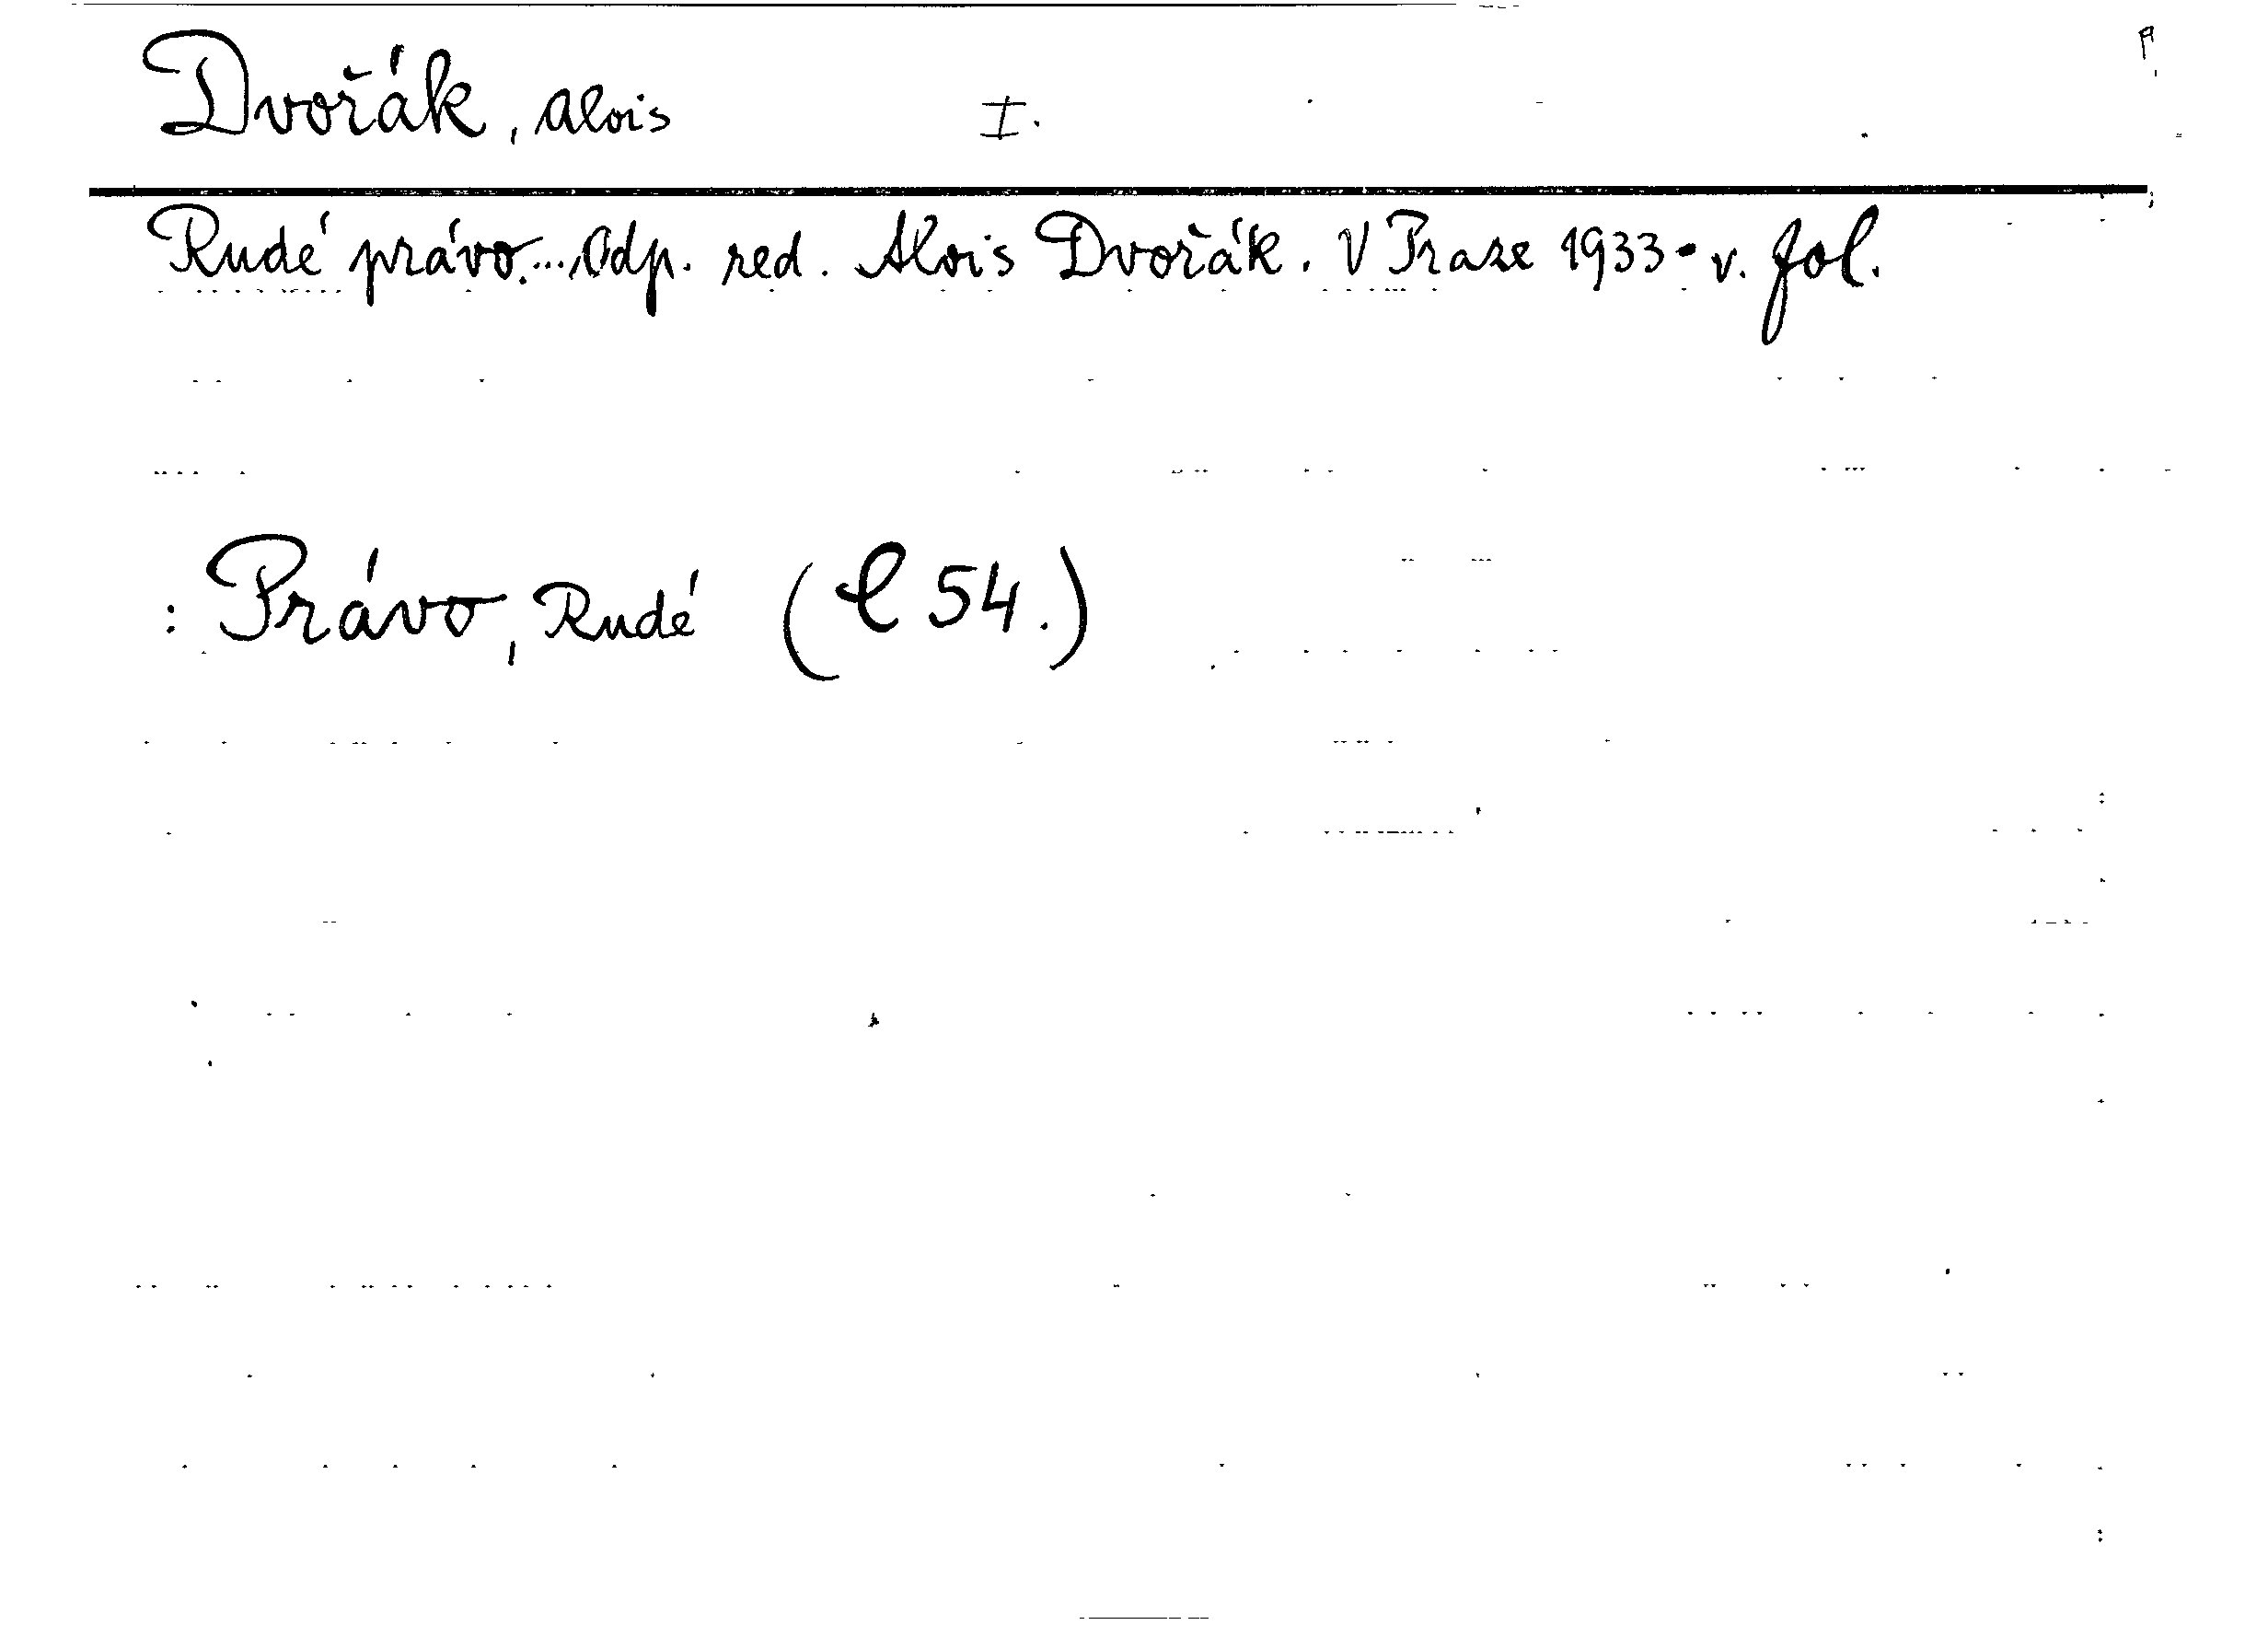 Dvořák, Alois I.
Rudé právo.... Odp. red. Alois Dvořák. V Praze 1933 - v. fol.
: Právo, Rudé ( 54.)